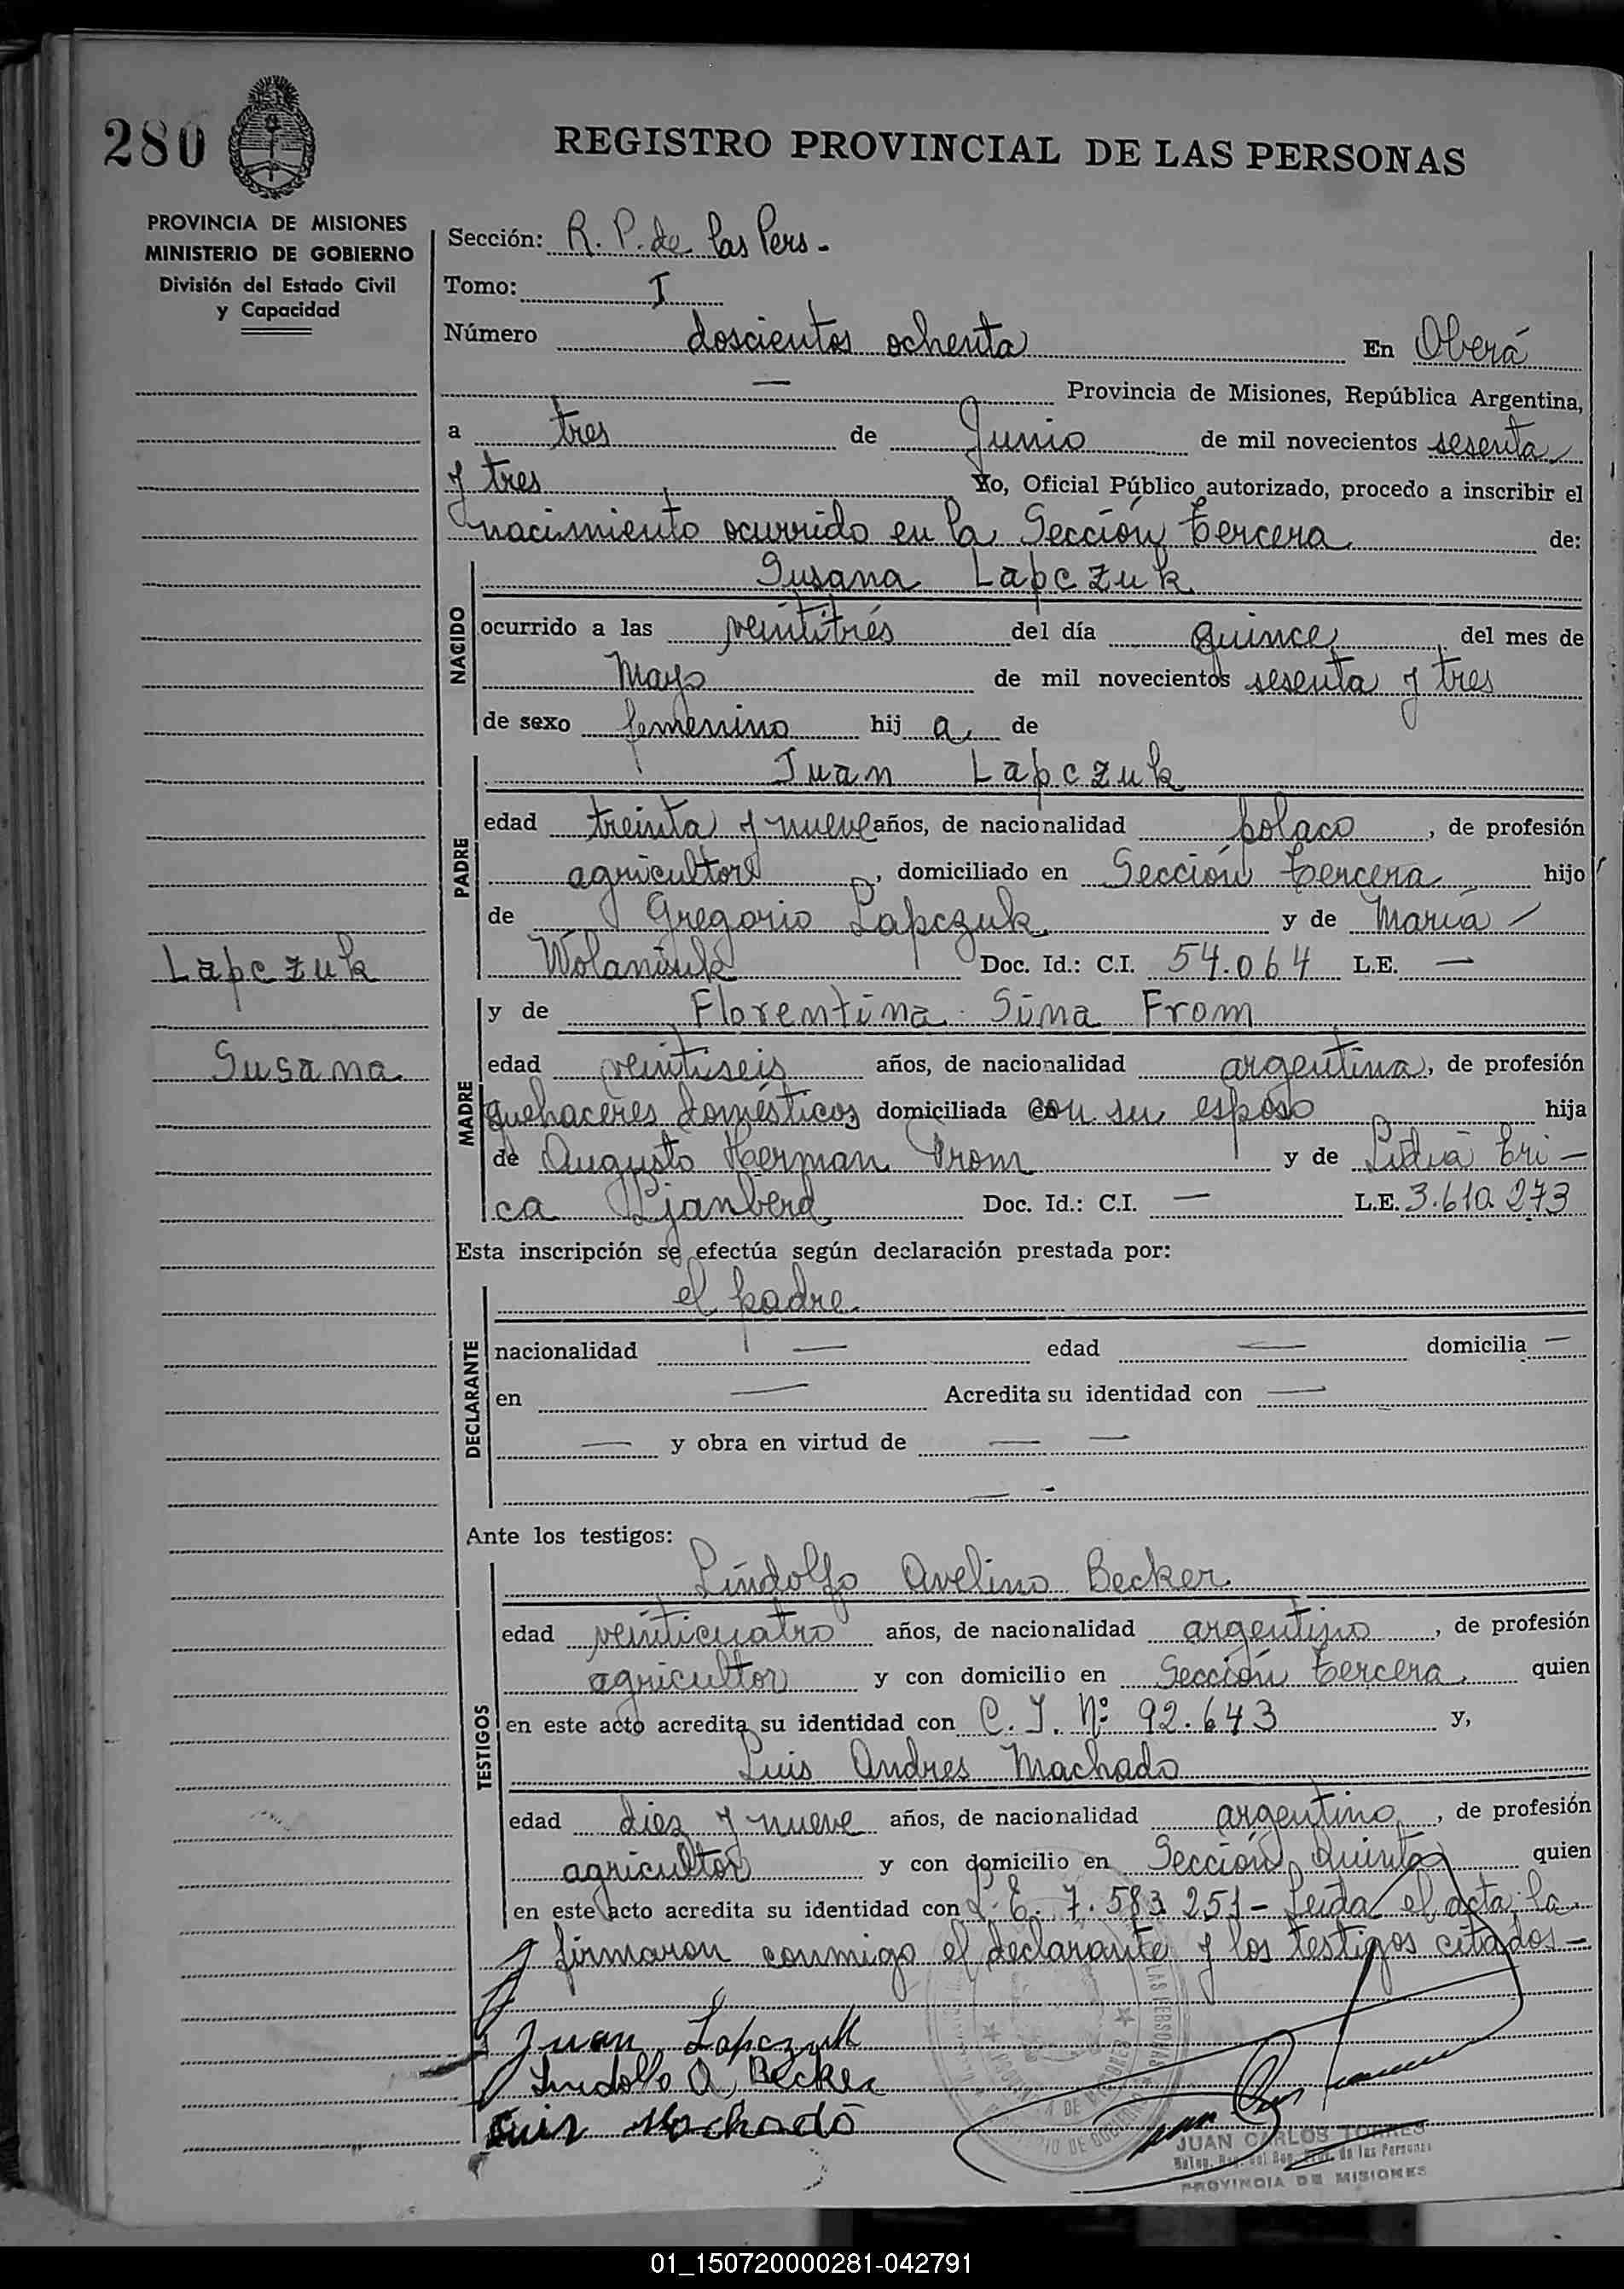 280
REGISTRO PROVINCIAL DE LAS PERSONAS
PROVINCIA DE MISIONES
MINISTERIO DE GOBIERNO
División del Estado Civil
y Capacidad
Lapczuk
Susana
Sección: R. P. de las Pers -
Tomo: I
Número doscientos ochenta En Oberá
— Provincia de Misiones, República Argentina,
a tres de Junio de mil novecientos sesenta
y tres Yo, Oficial Público autorizado, procedo a inscribir el
nacimiento ocurrido en la Sección tercera de:
NACIDO
Susana Lapczuk
ocurrido a las veintitrés del día quince del mes de
Mayo de mil novecientos sesenta y tres
de sexo femenino hij a de
PADRE
Juan Lapczuk
edad treinta y nueve años, de nacionalidad polaco, de profesión
agricultor, domiciliado en Sección tercera hijo
de Gregorio Lapczuk y de María
Wolaniuk Doc. Id.: C.I. 54.064 L.E. —
MADRE
y de Florentina Sina From
edad veintiseis años, de nacionalidad argentina, de profesión
quehaceres domésticos domiciliada con su esposo hija
de Augusto Herman From y de Lidia Eri-
ca Doc. Id.: C.I. — L.E. 3.610.273
Esta inscripción se efectúa según declaración prestada por:
DECLARANTE
el padre
nacionalidad — edad — domicilia —
en — Acredita su identidad con —
— y obra en virtud de — —
Ante los testigos:
TESTIGOS
Lindolfo Avelino Becker
edad veinticuatro años, de nacionalidad argentino, de profesión
agricultor y con domicilio en Sección tercera quien
en este acto acredita su identidad con C. I. Nº 92.643 y,
Luis Andres Machado
edad diez y nueve años, de nacionalidad argentino, de profesión
agricultor y con domicilio en Sección Quinta quien
en este acto acredita su identidad con L. E. 7.583.251 - Leída el acta la
firmaron conmigo el declarante y los testigos citados -
Juan Lapczuk
Lindolfo A. Becker
Luis Machado
JUAN CARLOS TORRES
de las Personas
PROVINCIA DE MISIONES
01_150720000281-042791